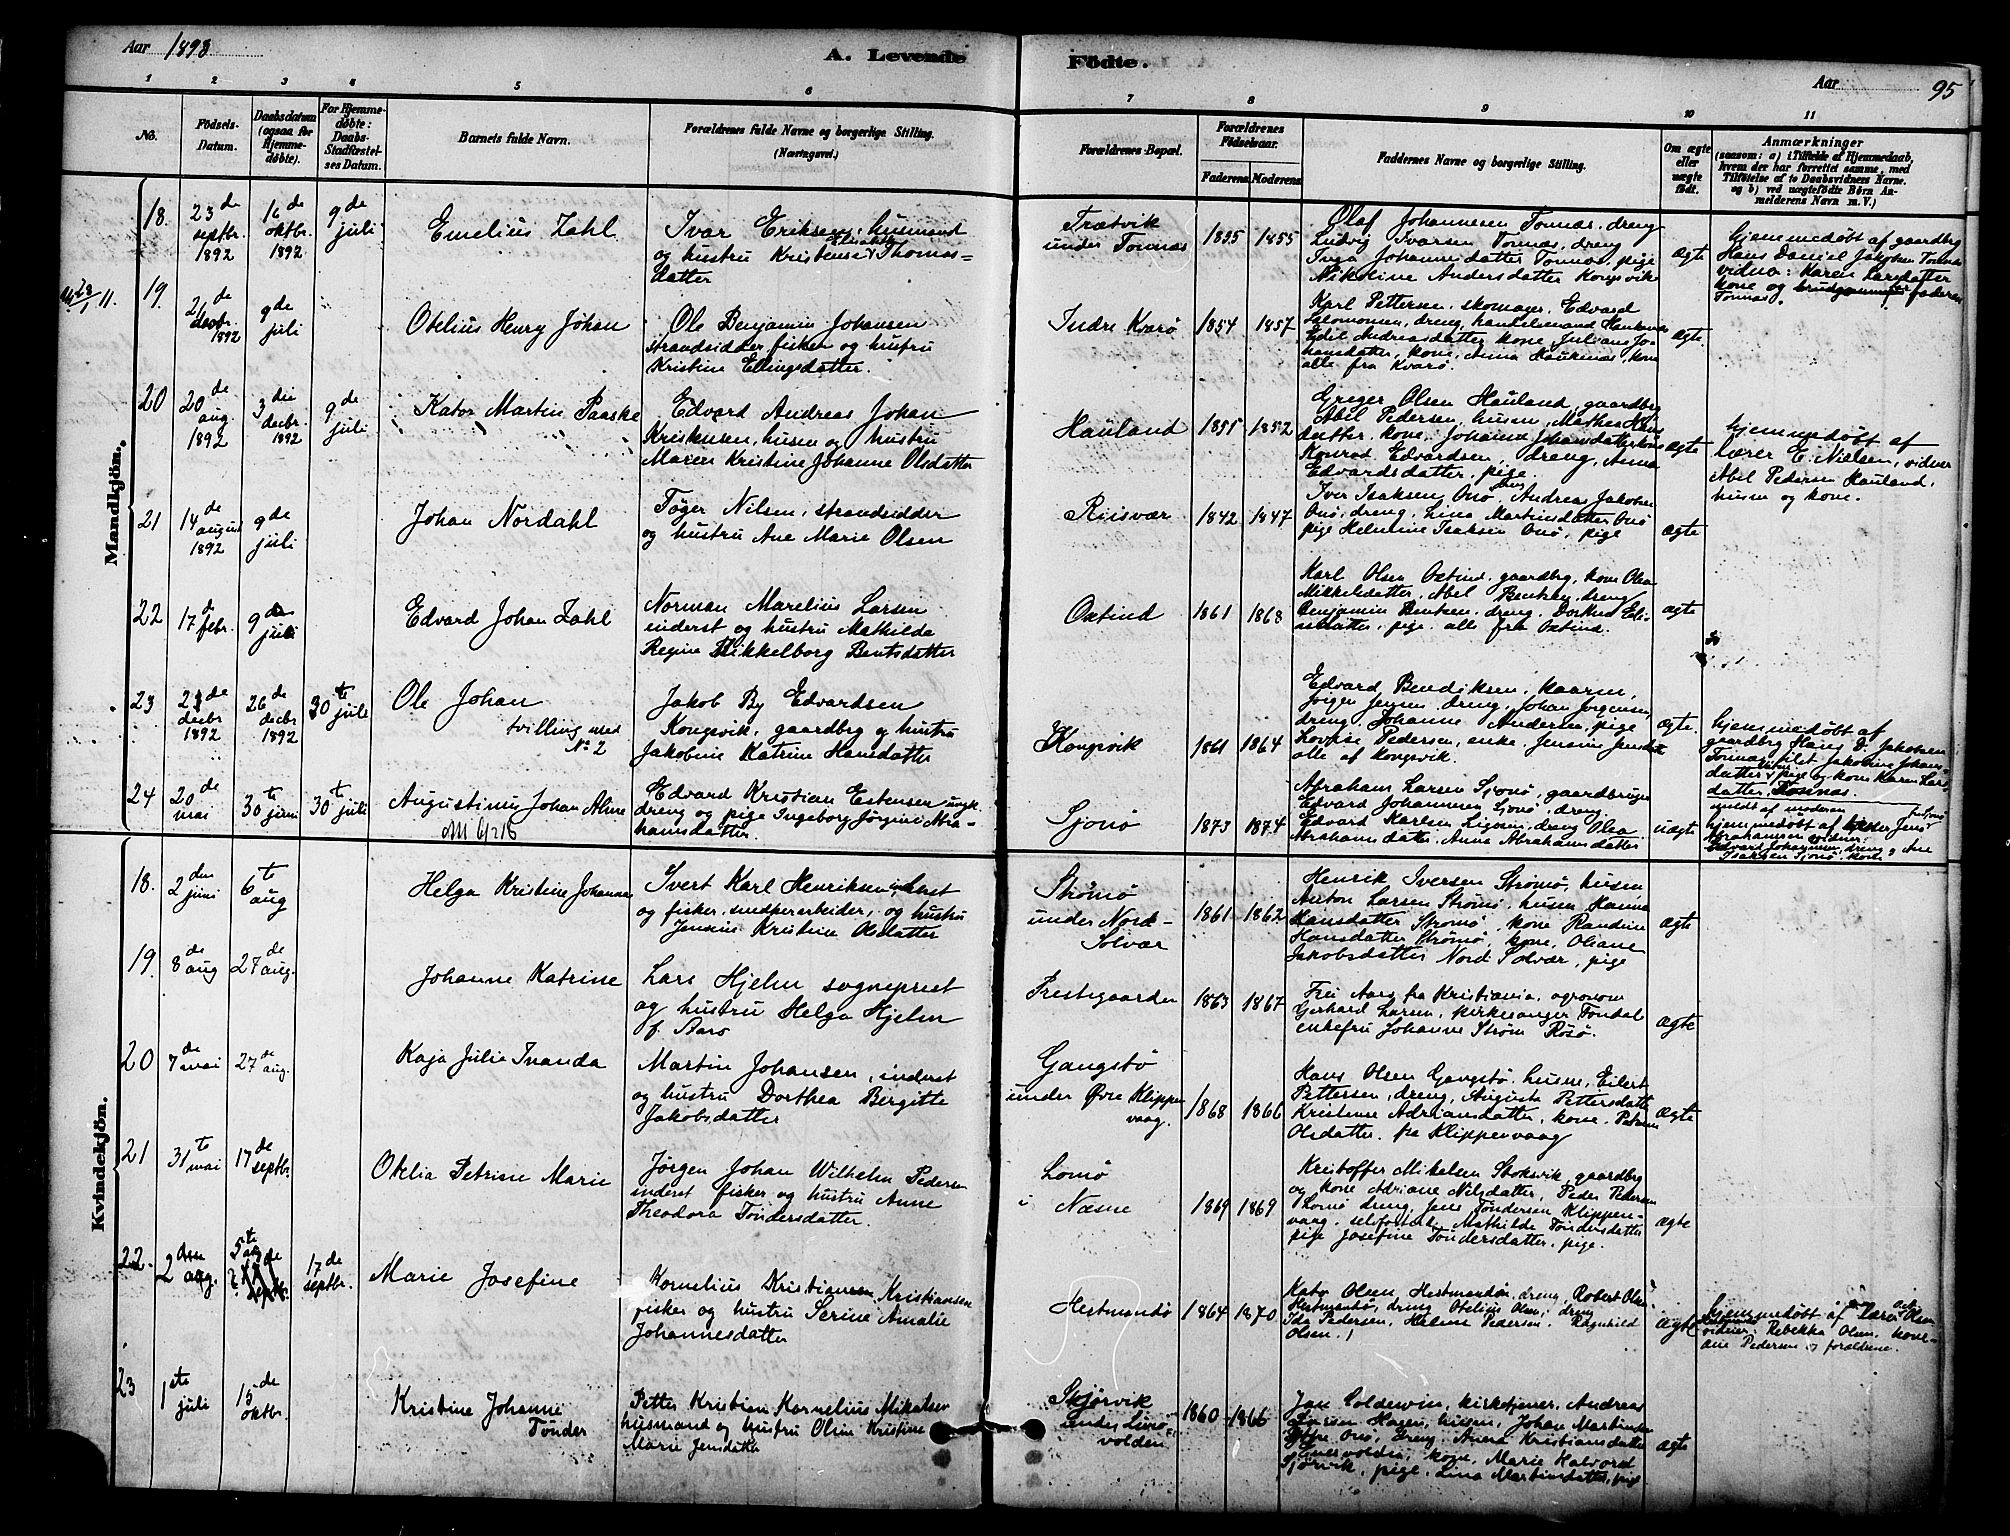 Aar 1893
A. Levende
Födte.
Aar
95
1 2 3 4 5 6 7 8 9 10 11
No.
Födsels-Datum.
Daabsdatum (ogsaa for Hjemmedøbte).
For Hjemmedøbte: Daabs-Stadfæstelses Datum.
Barnets fulde Navn.
Forældrenes fulde Navne og borgerlige Stilling.
(Næringsvei.)
Forældrenes Bopæl.
Forældrenes Födselsaar.
Faderens Moderens
Faddernes Navne og borgerlige Stilling.
Om ægte eller uægte födt.
Anmærkninger
(saasom: a) i Tilfælde af Hjemmedaab,
hvem der har forrettet samme, med
Tilföielse af to Daabsvidners Navne.
og b) ved uægtefödte Börn An-
melderens Navn m. V.)
Mandkjön.
18. 23de septbr. 1892 16de oktbr. 1892 9de juli
Emelius Zahl.
Ivar Eriksen, husmand
og hustru Kristense Elisabeth Thomas-
datter
Trætvik
under Tonnæs
1855 1855
Olaf Johannesen Tonnæs, dreng
Ludvig Ivarsen Tonnæs, dreng
Inga Johannesdatter Tonnæs, pige
Nikoline Andersdatter Kongsvik
ægte
hjemmedøbt af gaardbrg
Hans Daniel Jakobsen Tonnæs
vidner: Karen Larsdatter
kone og faderen
Tonnæs.
19. 26de decbr. 1892 9de juli
Otelius Henry Johan
Ole Benjamin Johansen
strandsidder, fisker og hustru
Kristine Ellingsdatter.
Indre Kvarø
1854 1857
Karl Pettersen, skomager, Edvard
Salomonsen, dreng, handelsmand Hauknæs
Edil Andreasdatter kone, Juliane Jo-
hansdatter, kone, Anna Hauknæs, kone
alle fra Kvarø.
ægte.
20 20de aug 1892 3die decbr. 1892 9de juli
Kator Martin Paaske
Edvard Andreas Johan
Kristensen, husm og hustru
Maren Kristine Johanne Olsdatter
Hauland
1851 1852
Greger Olsen Hauland, gaardbrg
Abel Pedersen, husm, Mathea Hans
datter, kone, Johanna Johansdatter kone
Konrad Edvardsen, dreng, Anna
Edvardsdatter, pige
ægte
hjemmedøbt af
lærer E. Nielsen, vidner
Abel Pedersen Hauland,
husm og kone.
21 14de august 1892 9de juli
Johan Nordahl
Tøger Nilsen, strandsidder
og hustru Ane Marie Olsen
Riisvær
1842 1847
Iver Isaksen Onø, dreng, Andreas Jakobsen
Onø, dreng, Lina Martinsdatter Onø
pige Helmine Isaksen Onø, pige
ægte
22 17de febr. 9de juli
Edvard Johan Zahl
Norman Marelius Larsen
inderst og hustru Mathilde
Regine Mikkelborg Bentsdatter
Oxtind
1861 1868
Karl Olsen Oxtind, gaardbrg, kone Olea
Mikkelsdatter, Abel Bentsen, dreng
Benjamin Bentsen, dreng, Dorthea Eli-
asdatter, pige. alle fra Oxtind.
ægte
23 23de decbr 1892 26de decbr 1892 30te juli
Ole Johan
tvilling med
No 2
Jakob By Edvardsen
Kongsvik, gaardbrg og hustru
Jakobine Katrine Hansdatter
Kongsvik
1861 1864
Edvard Bendiksen, kaarm,
Jørgen Jensen dreng, Johan Jørgensen,
dreng Johanne Andersen, pige
Lovise Pedersen, enke, Jensine Jensdatter
alle af Kongsvik.
ægte.
hjemmedøbt af
gaardbrg Hans D. Jakobsen
Tonnæs, Jakobine Johans-
datter, pige og kone Karen Lars
datter, Tonnæs.
24 20de mai 30te juni 30te juli
Augustinus Johan Alme
Edvard Kristian Estensen ungk.
dreng og pige Ingeborg Jørgine Abra-
hamsdatter.
Sjonø
1873 1874
Abraham Larsen Sjonø, gaardbruger
Edvard Johannesen Sjonø, dreng
Edvard Karlsen, dreng Olea
Abrahamsdatter, Anna Abrahamsdatter
uægte
meldt af moderen
hjemmedøbt af Jens
Abrahamsen vidner:
Edvard Johannesen, dreng, Ane
Isaksen Sjonø, kone
Kvindekjön.
18. 2den juni 6te aug
Helga Kristine Johanne
Ivert Karl Henriksen inderst
og fisker, og hustru
Jensine Kristine Olsdatter
Strømø
under Nord-
Solvær
1861 1862
Henrik Iversen Strømø, husm
Anton Larsen Strømø, husm Hanna
Hansdatter Strømø, kone Randine
Hansdatter Strømø, kone, Oliane
Jakobsdatter Nord Solvær, pige
ægte
19. 8de aug 27de aug.
Johanne Katrine
Lars Hjelm sogneprest
og hustru Helga Hjelm
f. Aars
Prestegaarden
1863 1867
Frei Aars fra Kristiania, agronom
Gerhard Larsen, kirkesanger Tøndal
enkefru Johanne Strøm Røsø.
ægte
20 7de mai 27de aug.
Kaja Julie Ivanda
Martin Johansen, inderst
og hustru Dorthea Bergitte
Jakobsdatter
Gangstø
under Øvre Klippen
vaag.
1868 1866
Hans Olsen Gangstø, husm, Eilert
Pettersen, dreng, Augusta Pettersdatter
Kristense Adriansdatter, kone.
Olsdatter. fra Klippenvaag
ægte
21 31te mai 17de septbr.
Otelia Petrine Marie
Jørgen Johan Wilhelm Pedersen
inderst fisker og hustru Anne
Theodora Tøndersdatter.
Lomø
i Næsne
1869 1869
Kristoffer Mikelsen Stoksvik, gaardbrg
og kone Adriane Nilsdatter, Peder Pedersen
Lomø dreng, Jens Tøndersen Klippen-
vaag, Mathilde Tøndersdatter
pige Josefine Tøndersdatter, pige.
ægte
22. 2den aug. 5te aug 17de septbr.
Marie Josefine
Kornelius Kristiansen
fisker og hustru Serine Amalie
Johannesdatter
Hestmandø
1864 1870
Kato Olsen, Hestmandøn, dreng Robert Olsen
Hestmandø, dreng Otelius Olsen, dreng
Ida Pedersen, Helene Pedersen, Ragnhild
Olsen.
ægte
hjemmedøbt af Lars Olsen
vidner: Rebekka Olsen, kone
ane Pedersen og forældrene.
23 1ste juli 15de oktbr.
Kristine Johanne
Tønder
Petter Kristian Kornelius Mikalsen
husmand og hustru Oline Kristine
Marie Jensdatter
Skjørvik
under Lurø-
volden
1860 1866
Jan Coldevin, kirketjener, Andreas
Larsen Hagen, husm, Johan Martinsen
Onø, dreng, Anna Kristiansdatter
kone, Marie Halvorsd
pige, Lina Martinsdatter, pige
ægte